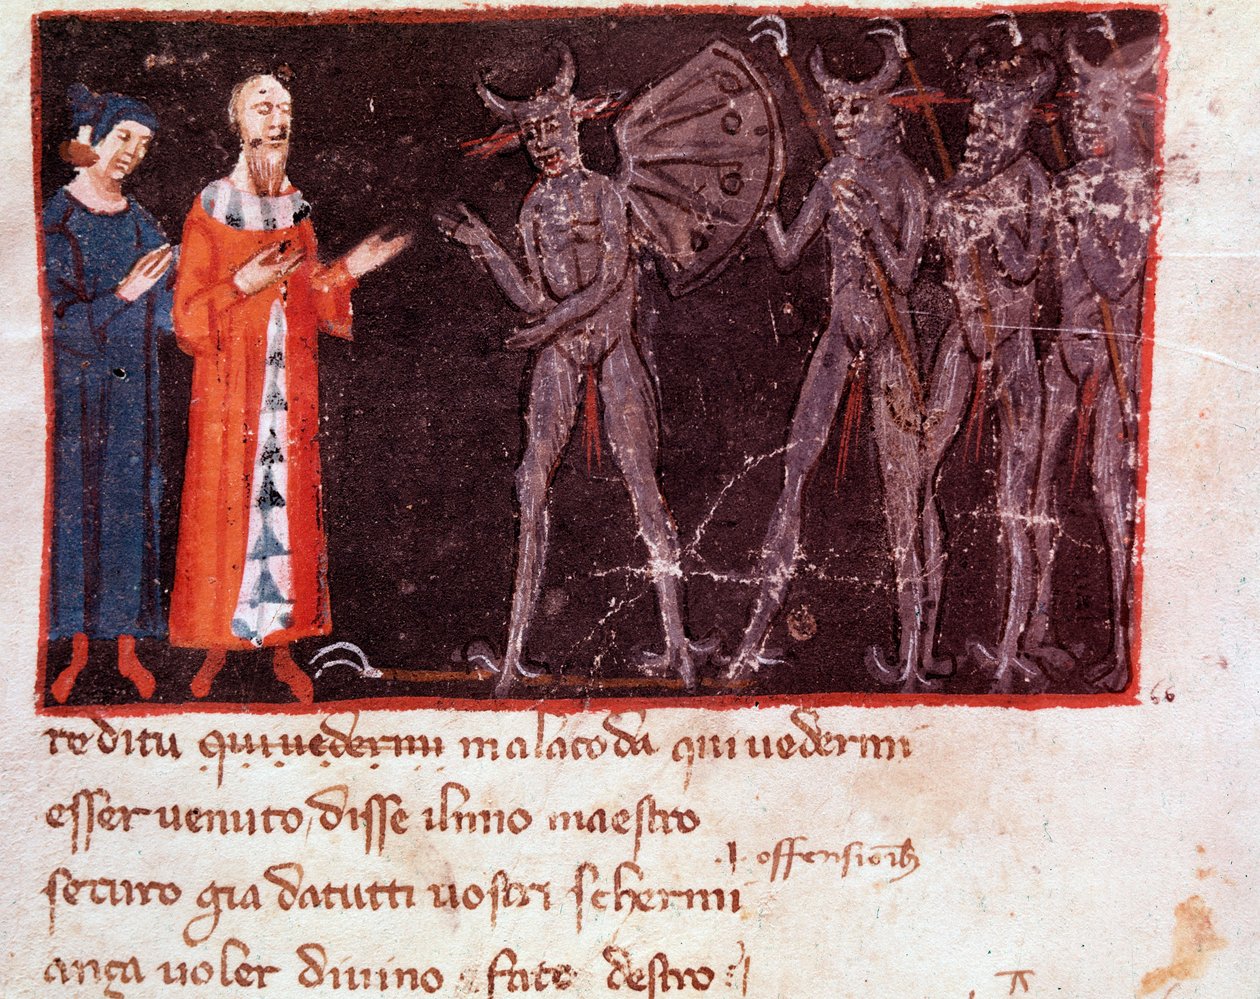 re ditu qui uedermi malacoda qui uedermi
esser uenuto, disse ilmio maestro
securo gia datutti uostri schermi
.i. offensioīb
ança uoler diuino fato destro
66